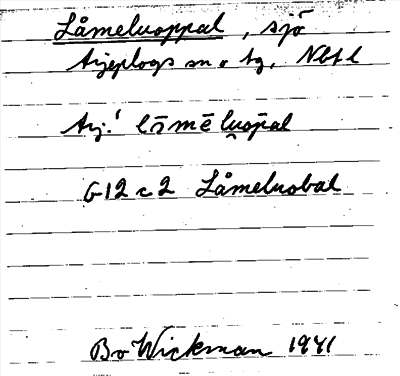 Låmeluoppal, sjö
Arjeplogs sn. o tg, Nbtl
Arj.! lō̄mē luōpal
G12 c 2 Låmeluobal
Bo Wickman 1941